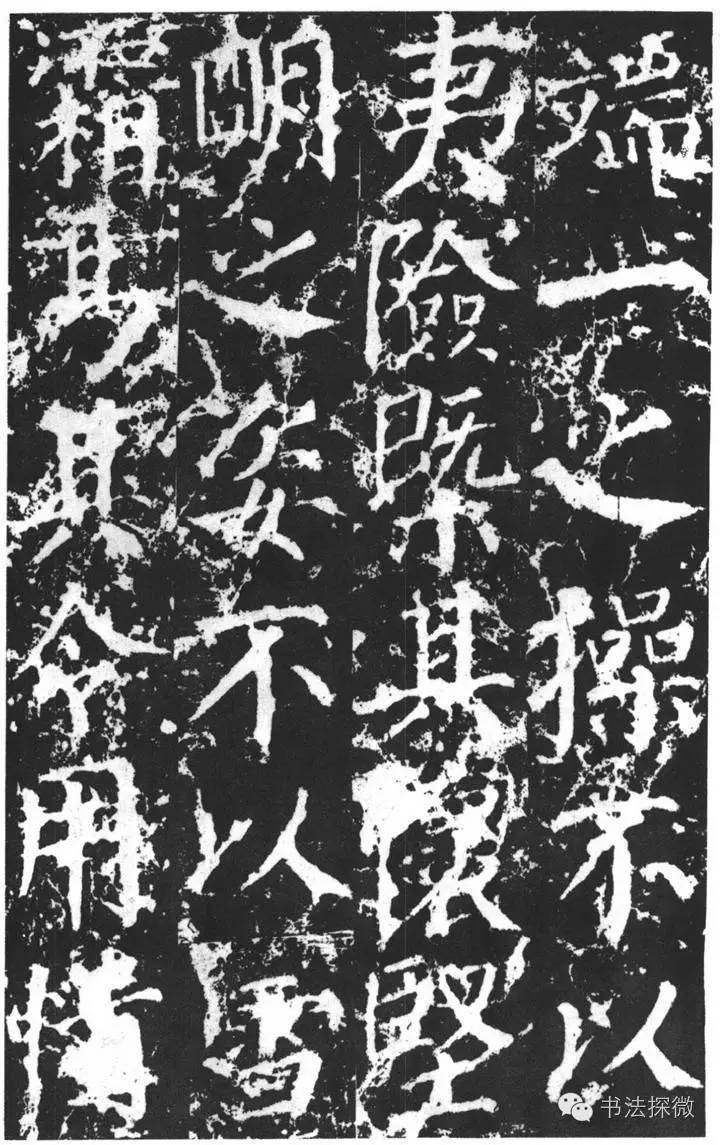 端一之操不以
夷險槩其懷堅
明之姿不以雪
霜其令用情
书法探微